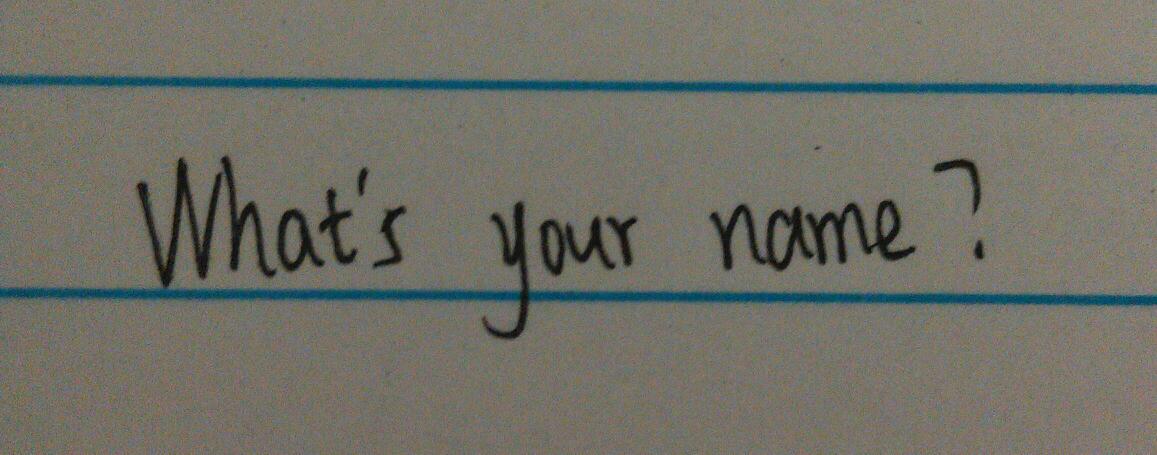 What's your name?